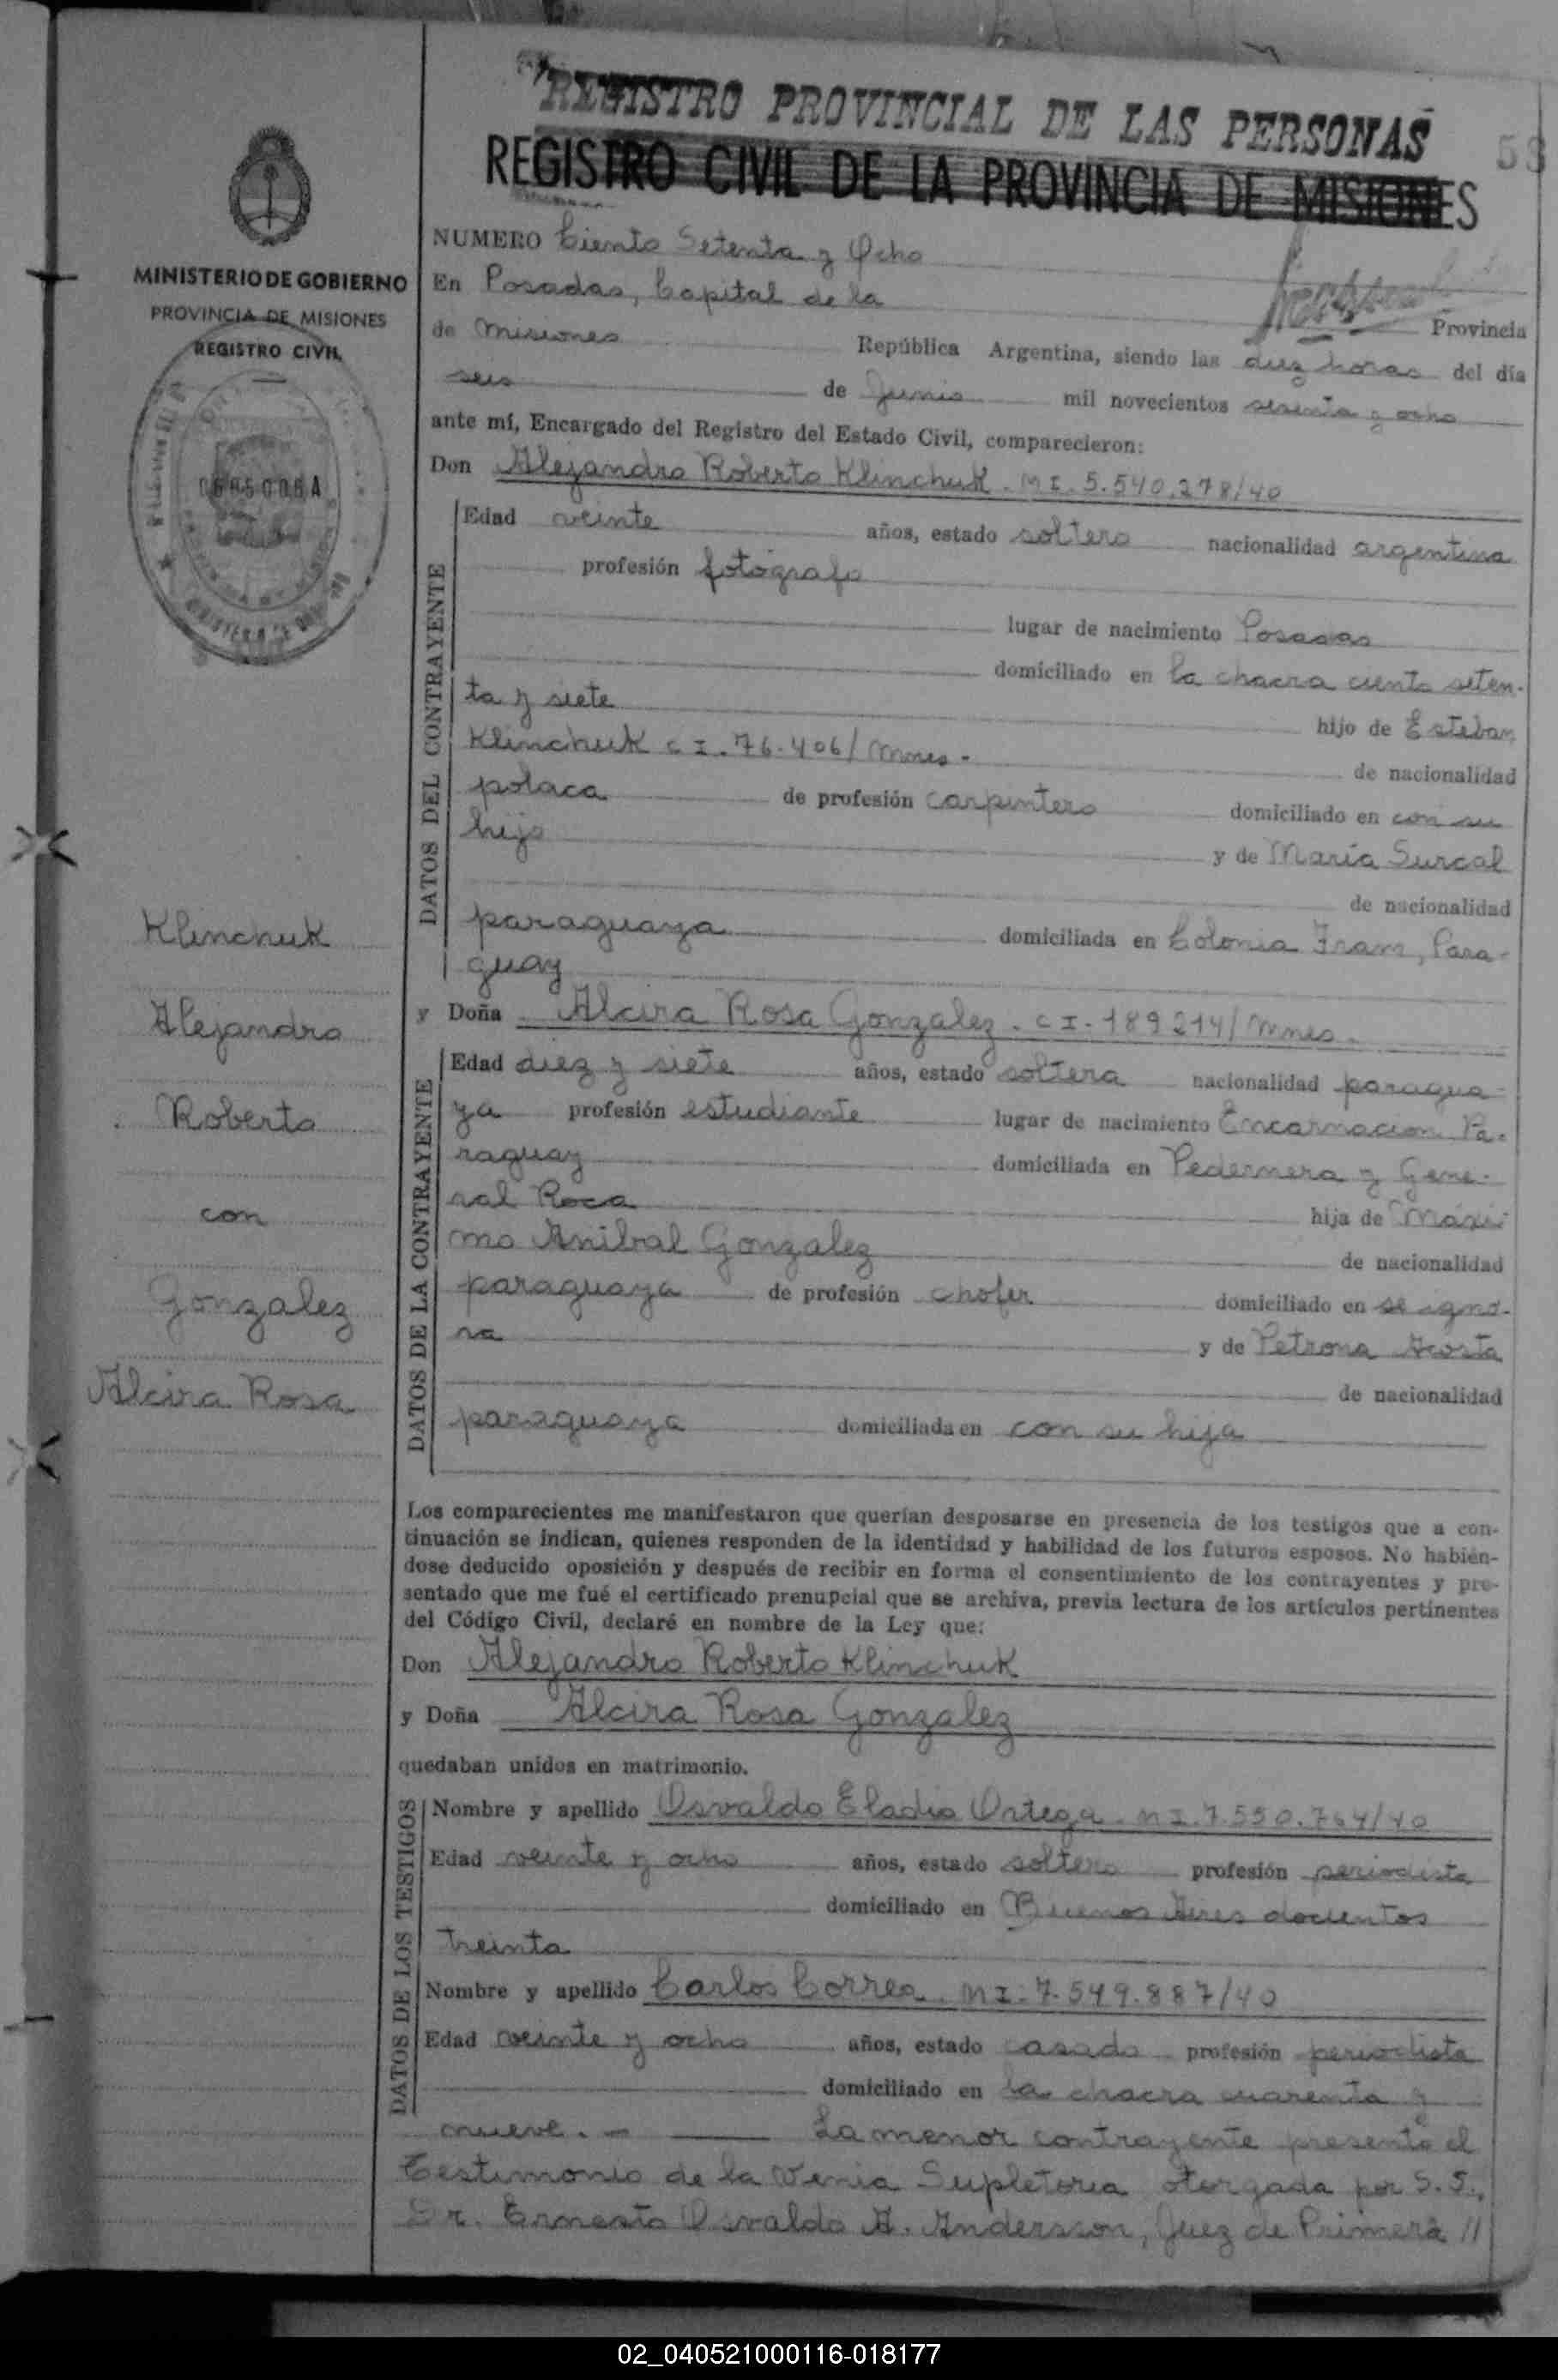 REGISTRO PROVINCIAL DE LAS PERSONAS
58
REGISTRO CIVIL DE LA PROVINCIA DE MISIONES
MINISTERIO DE GOBIERNO
PROVINCIA DE MISIONES
REGISTRO CIVIL
NUMERO Ciento Setenta y Ocho
En Posadas, Capital de la Provincia
de Misiones República Argentina, siendo las diez horas del día
seis de Junio mil novecientos sesenta y ocho
ante mí, Encargado del Registro del Estado Civil, comparecieron:
Don Alejandro Roberto Klinchuk. M I. 5.540.278/40
DATOS DEL CONTRAYENTE
Edad veinte años, estado soltero nacionalidad argentina
profesión fotógrafo
lugar de nacimiento Posadas
domiciliado en la chacra ciento seten-
ta y siete hijo de Esteban
Klinchuk C I. 76.406/Mnes- de nacionalidad
polaca de profesión carpintero domiciliado en con su
hijo y de María Surcal
de nacionalidad
paraguaya domiciliada en Colonia Fram, Para-
guay
y Doña Alcira Rosa Gonzalez. C I. 189214/Mnes.
DATOS DE LA CONTRAYENTE
Edad diez y siete años, estado soltera nacionalidad paragua-
ya profesión estudiante lugar de nacimiento Encarnacion Pa-
raguay domiciliada en Pedernera y Gene-
ral Roca hija de Máxi
mo Anibal Gonzalez de nacionalidad
paraguaya de profesión chofer domiciliado en se igno-
ra y de Petrona Acosta
de nacionalidad
paraguaya domiciliada en con su hija
Klinchuk
Alejandro
Roberto
con
Gonzalez
Alcira Rosa
Los comparecientes me manifestaron que querían desposarse en presencia de los testigos que a con-
tinuación se indican, quienes responden de la identidad y habilidad de los futuros esposos. No habién-
dose deducido oposición y después de recibir en forma el consentimiento de los contrayentes y pre-
sentado que me fué el certificado prenupcial que se archiva, previa lectura de los artículos pertinentes
del Código Civil, declaré en nombre de la Ley que:
Don Alejandro Roberto Klinchuk
y Doña Alcira Rosa Gonzalez
quedaban unidos en matrimonio.
DATOS DE LOS TESTIGOS
Nombre y apellido Osvaldo Eladio Ortega M I. 7.550.764/40
Edad veinte y ocho años, estado soltero profesión periodista
domiciliado en Buenos Aires docientos
treinta
Nombre y apellido Carlos Correa. M I. 7.549.887/40
Edad veinte y ocho años, estado casado profesión periodista
domiciliado en la chacra cuarenta y
nueve. - La menor contrayente presenta el
Testimonio de la Venia Supletoria otorgada por S.S.,
Dr. Ernesto Osvaldo A. Andersson, Juez de Primera //
02_040521000116-018177